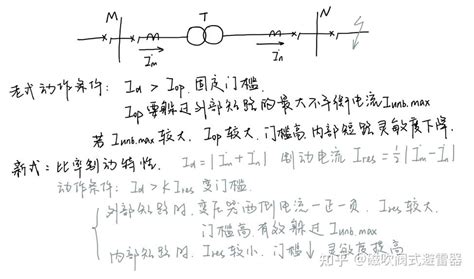 M T N
İm İn
老式动作条件: Id > Iop 固定门槛
Iop 要躲过外部短路的最大不平衡电流 Iunb.max
若 Iunb.max 较大, Iop 较大, 门槛高, 内部短路灵敏度下降.
新式: 比率制动特性. Id = |İm + İn| 制动电流 Ires = ½|İm − İn|
动作条件: Id > K Ires 变门槛.
外部短路时, 变压器两侧电流一正一负, Ires 较大,
门槛高有效躲过 Iunb.max
内部短路时, Ires 较小, 门槛↓ 灵敏度提高
知乎 @磁吹阀式避雷器